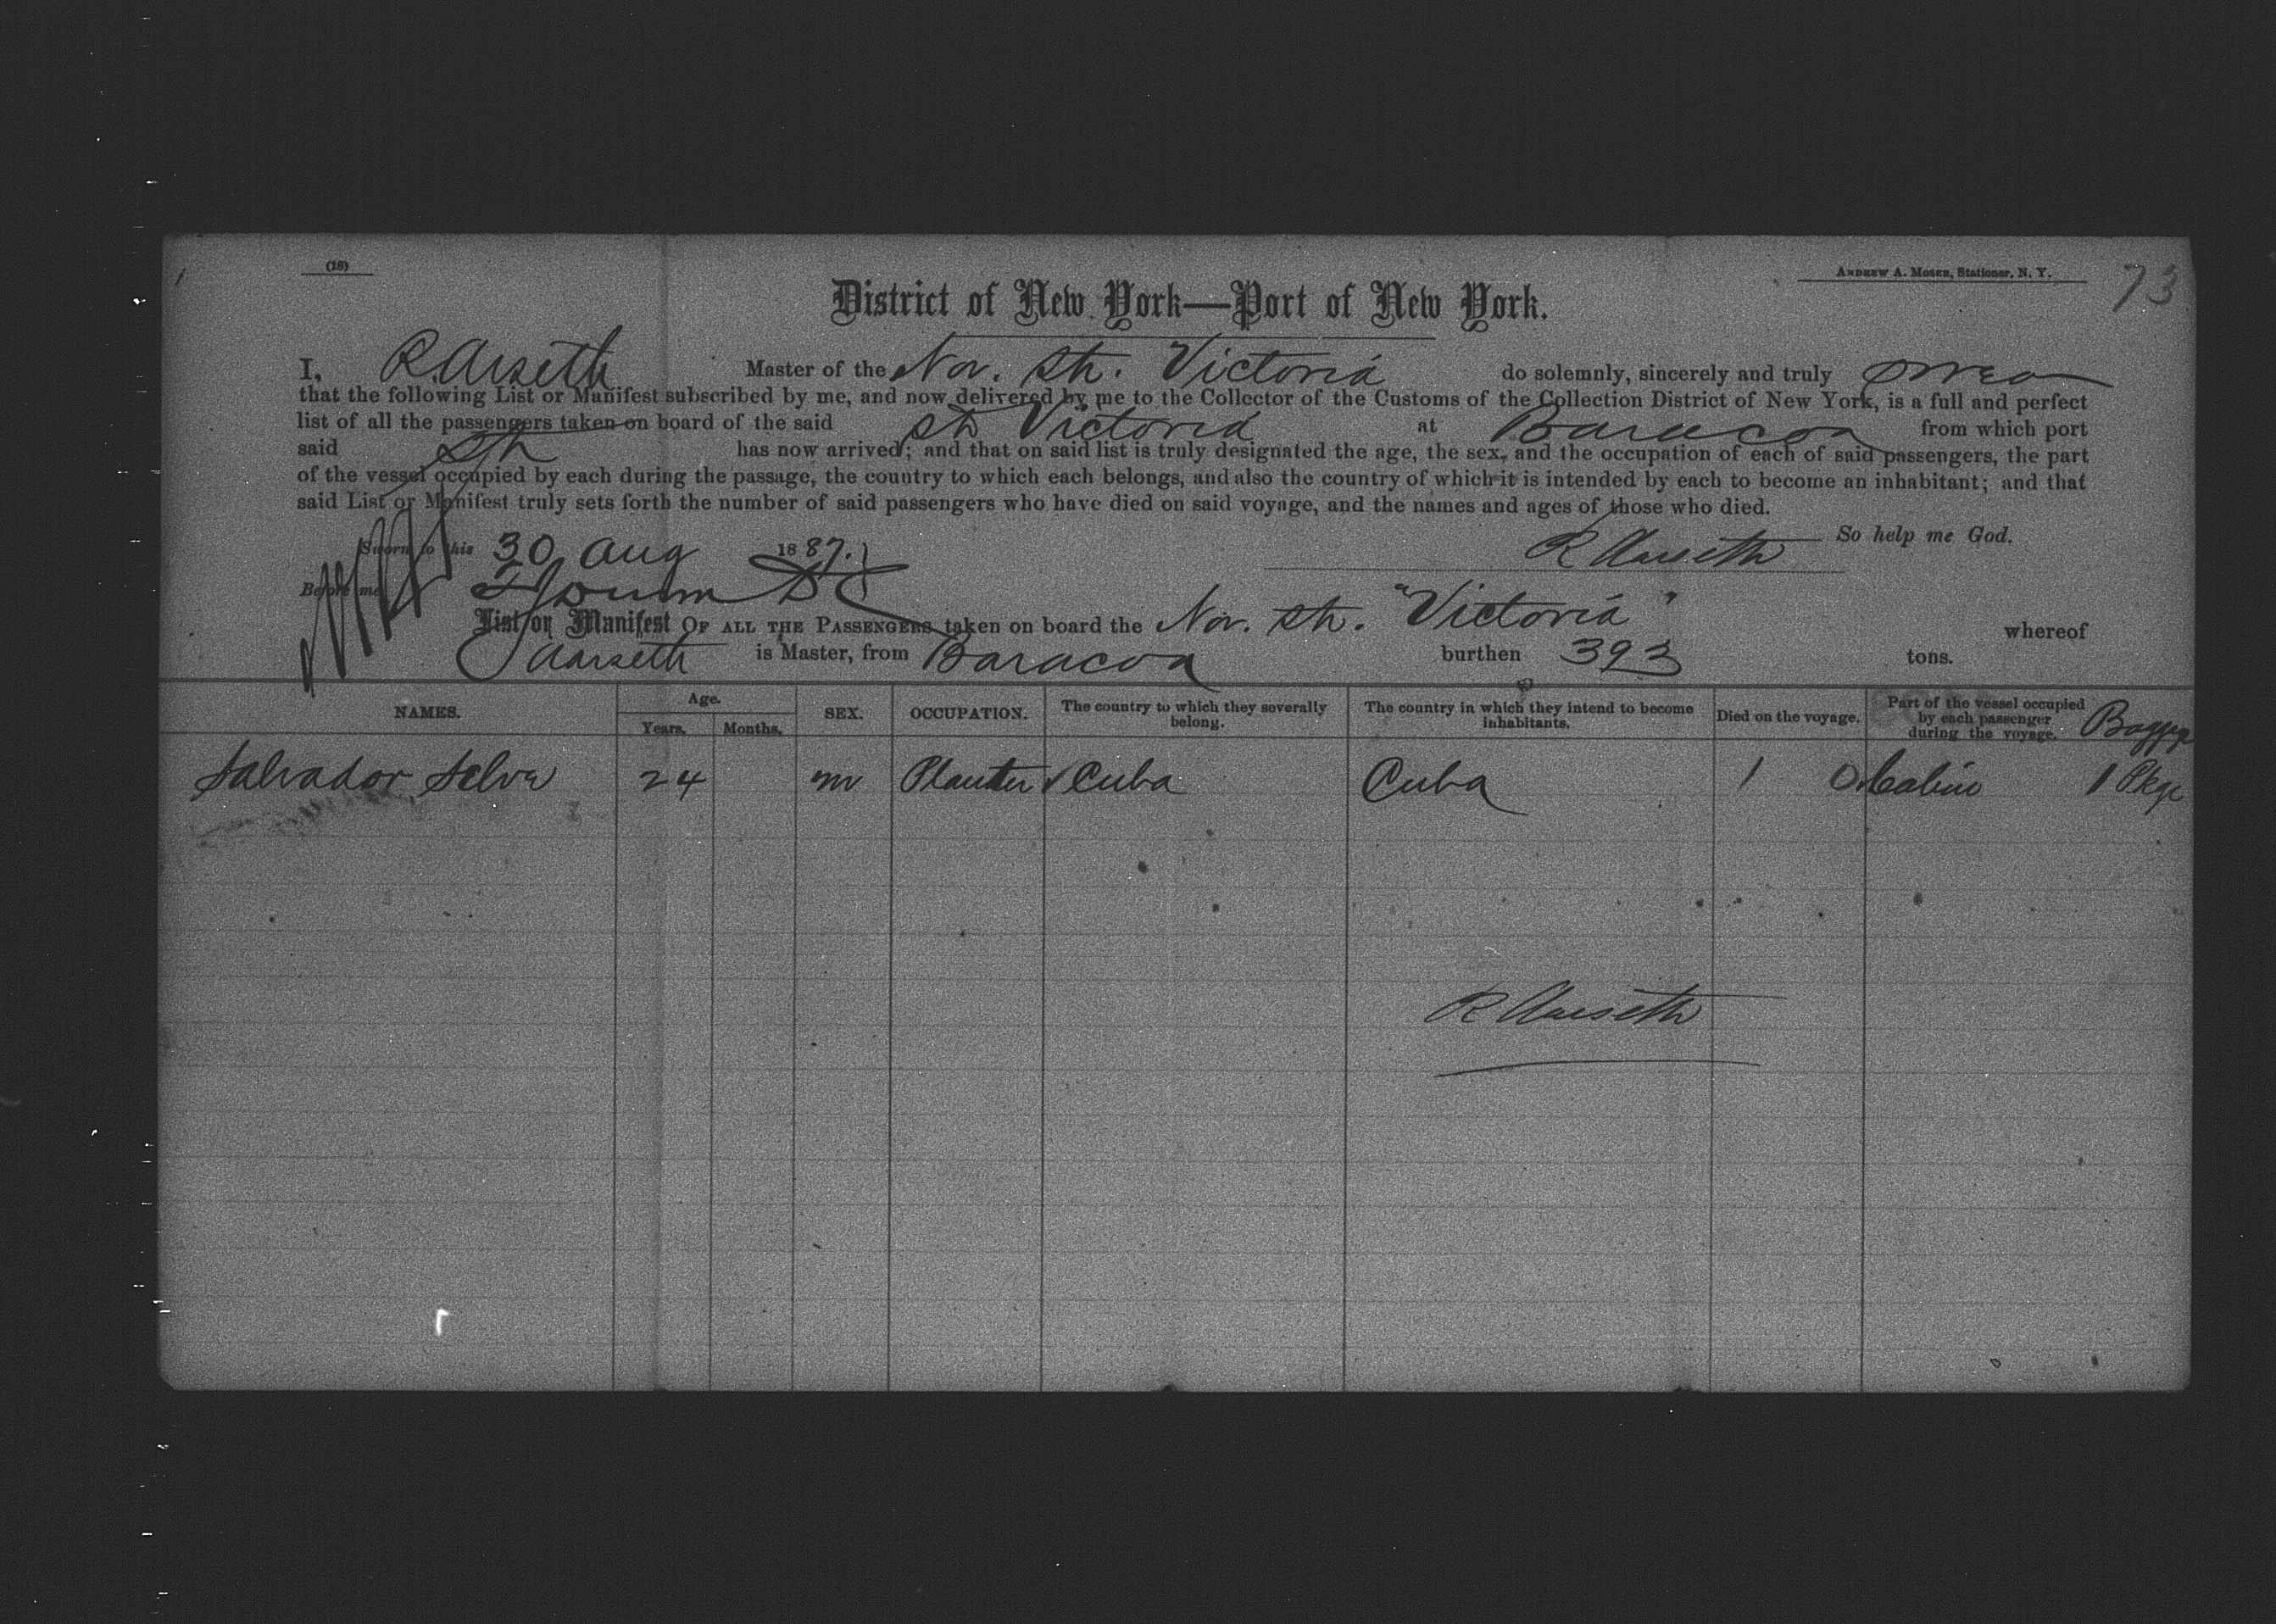 1
(18)
ANDREW A. MOSER, Stationer, N. Y.
73
District of New York—Port of New York.
I, R. Aarseth Master of the Nor. Str. Victoria do solemnly, sincerely and truly swear
that the following List or Manifest subscribed by me, and now delivered by me to the Collector of the Customs of the Collection District of New York, is a full and perfect
list of all the passengers taken on board of the said Str Victoria at Baracoa from which port
said Str has now arrived; and that on said list is truly designated the age, the sex, and the occupation of each of said passengers, the part
of the vessel occupied by each during the passage, the country to which each belongs, and also the country of which it is intended by each to become an inhabitant; and that
said List or Manifest truly sets forth the number of said passengers who have died on said voyage, and the names and ages of those who died.
So help me God.
Sworn to this 30 Aug 1887. R Aarseth
Before me
List or Manifest OF ALL THE PASSENGERS taken on board the Nor. Str. "Victoria" whereof
Aarseth is Master, from Baracoa burthen 393 tons.
NAMES. Age. Years. Months. SEX. OCCUPATION. The country to which they severally belong. The country in which they intend to become inhabitants. Died on the voyage. Part of the vessel occupied by each passenger during the voyage. Baggage
Salvador Selva 24 m Planter Cuba Cuba 1 0 Cabin 1 Pkge
R Aarseth